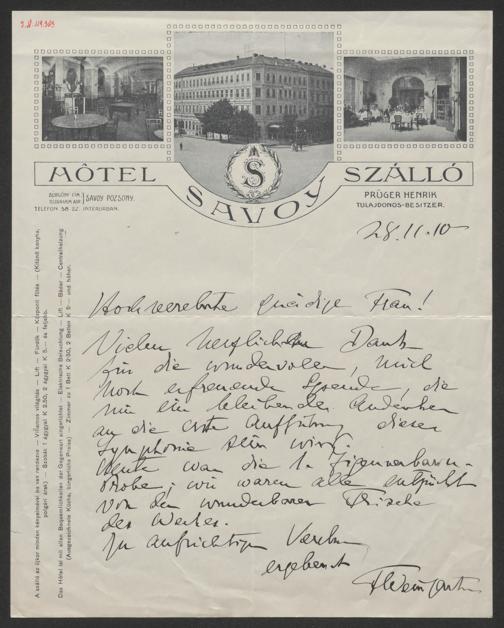 HÔTEL SAVOY SZÁLLÓ
SÜRGÖNY CIM
TELEGRAM ADR. SAVOY POZSONY.
TELEFON 58-22 INTERURBAN.
PRÜGER HENRIK
TULAJDONOS-BESITZER.
S
28.11.10
Hochverehrte gnädige Frau!
Vielen herzlichsten Dank
für die wundervolle, mich
hoch erfreuende Spende, die
mir ein bleibendes Andenken
an die erste Aufführung dieser
Symphonie sein wird.
Heute war die 1. Zigeunerbaron-
Probe; wir waren alle entzückt
von der wunderbaren Frische
des Werkes.
In aufrichtiger Verehrung
ergebenst
FWeingartner
A szálló az ujkor minden kényelmével be van rendezve — Villamos világitás — Lift — Fürdők — Központi fűtés — (Kitünő konyha,
polgári árak) — Szobák: 1 ágygyal K 2.50, 2 ágygyal K 5.— és feljebb.
Das Hôtel ist mit allen Bequemlichkeiten der Gegenwart eingerichtet — Elektrische Beleuchtung — Lift — Bäder — Centralheizung
(Ausgezeichnete Küche, bürgerliche Preise) — Zimmer zu 1 Bett K 2.50, 2 Betten K 5.— und höher.